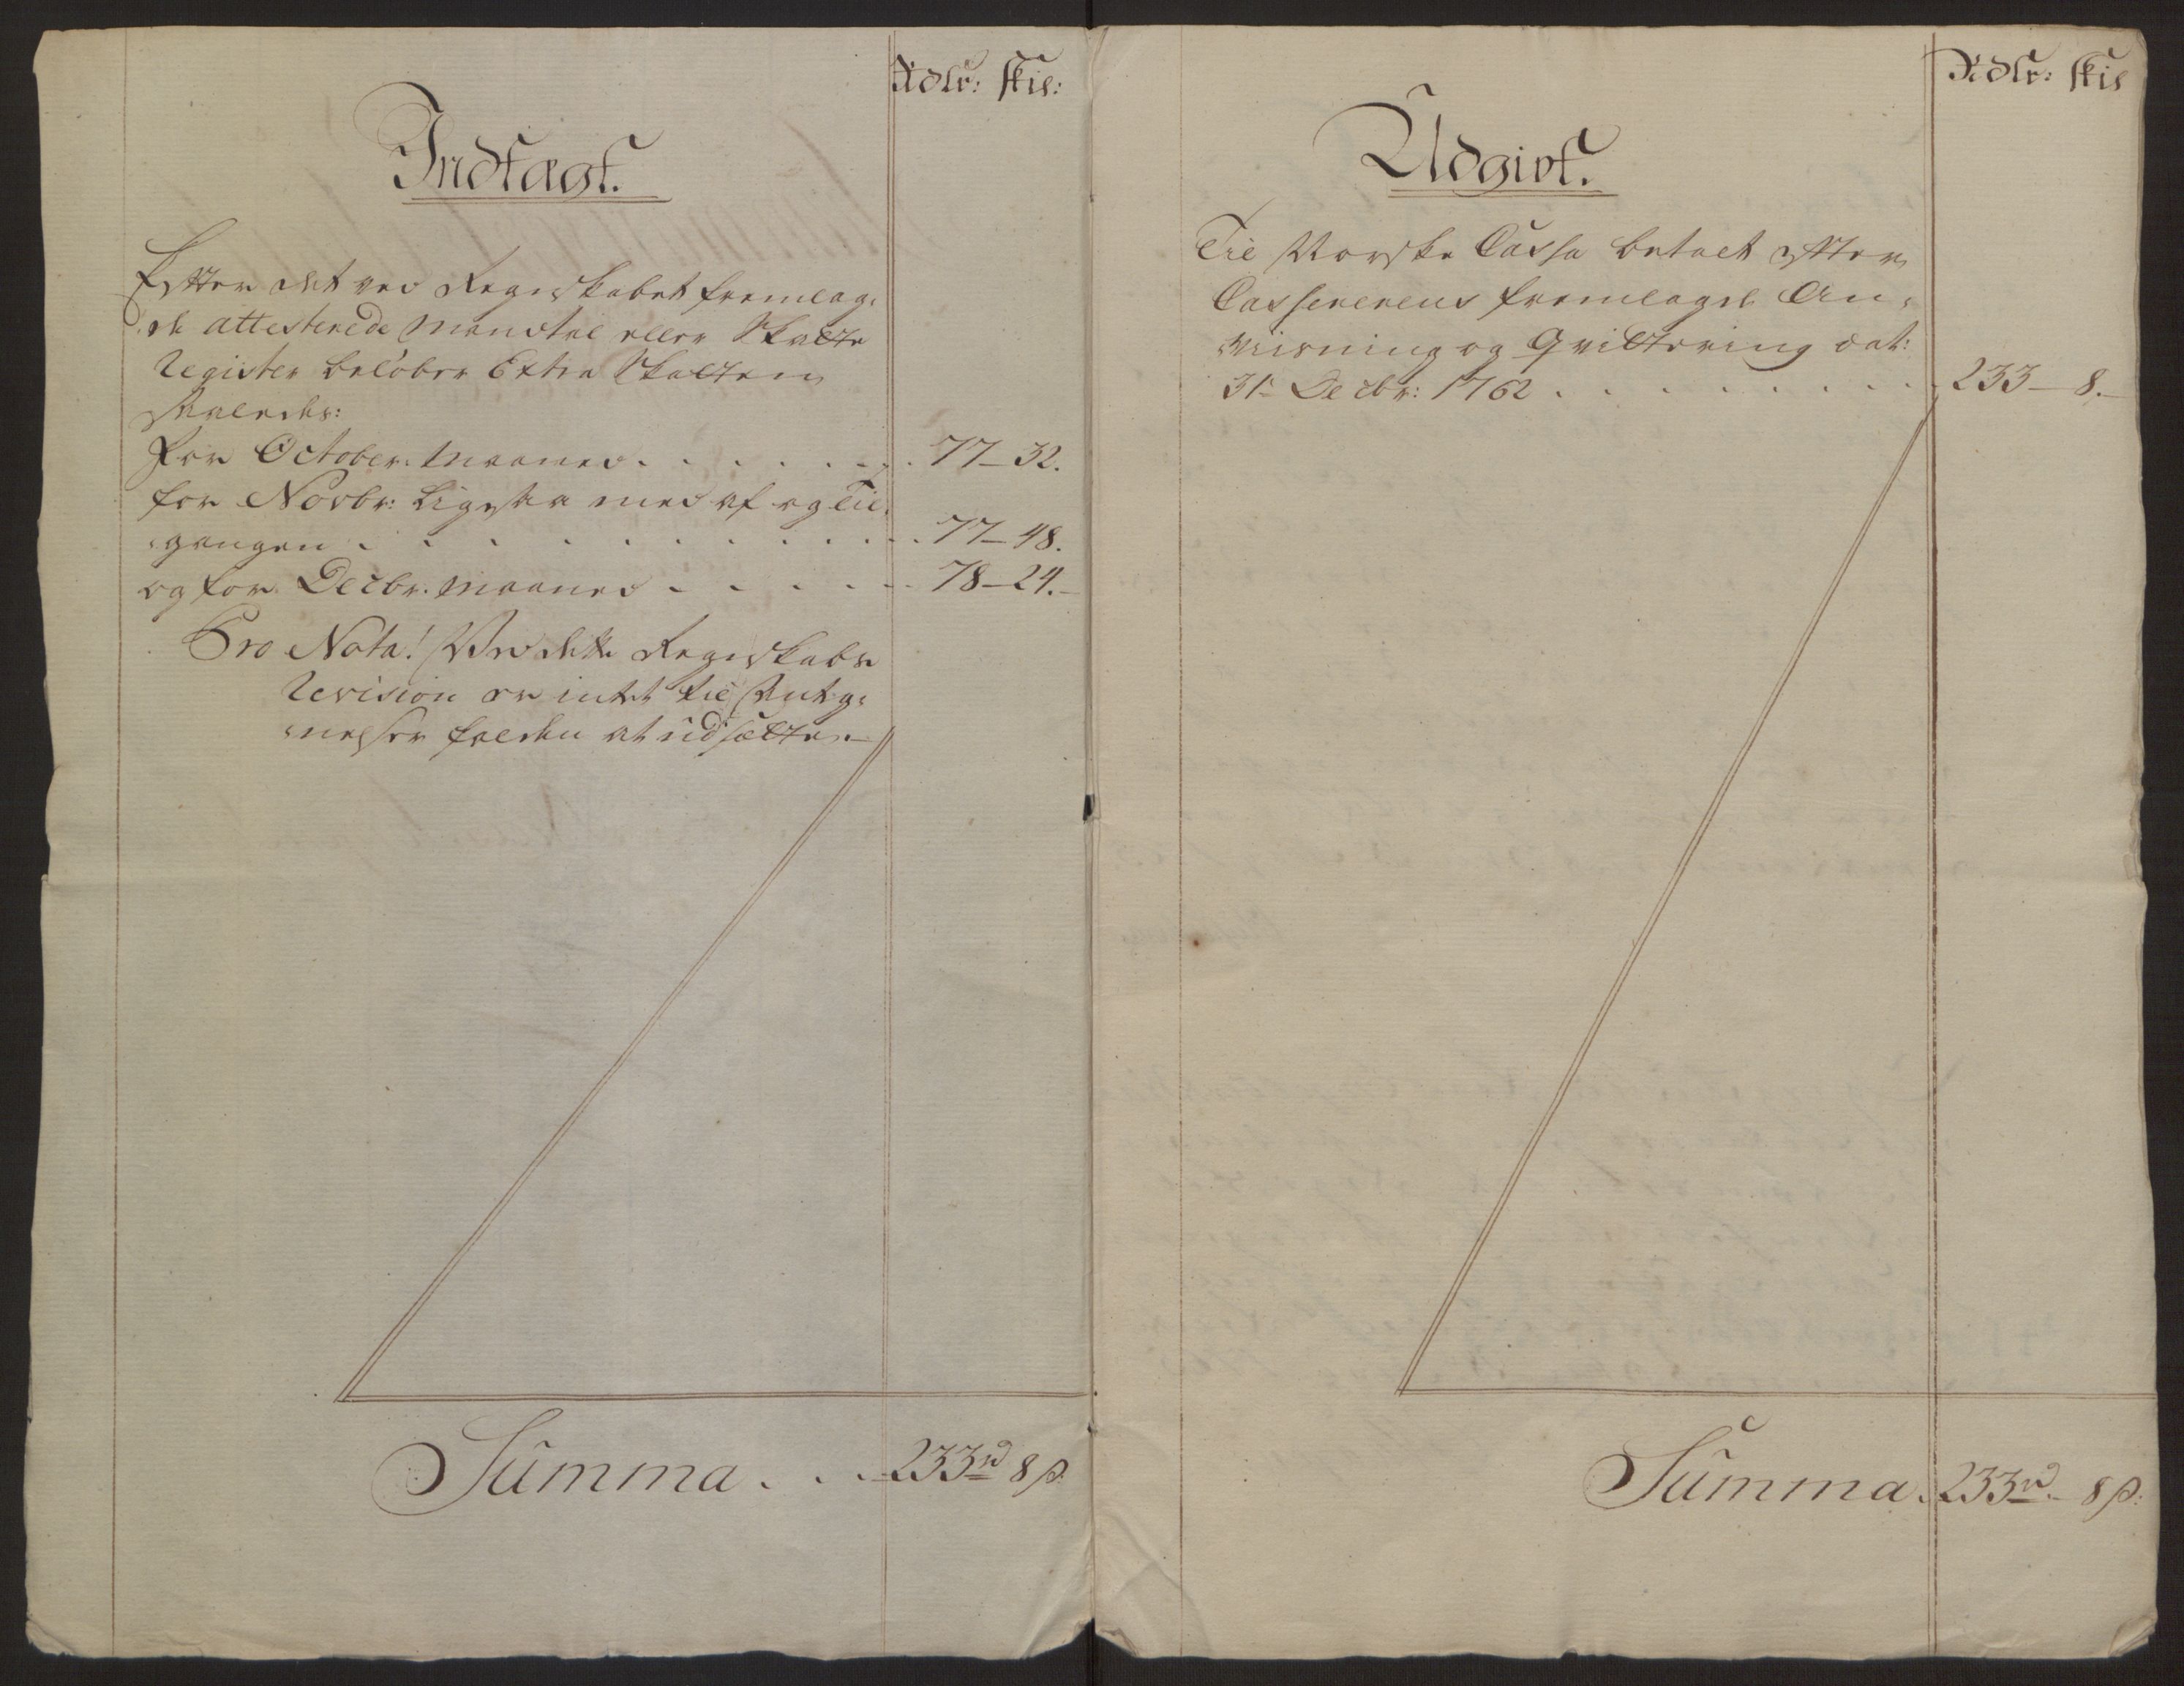 Rdlr: skil:
Indtægt.
Efter det ved Regnskabet fremlag-
de attesterede Mandtal eller Skatte
Register beløber Extra Skatten
saaledes:
for October Maaned . . . . . . 77 - 32.
for Novbr: Ligesaa med af og Til-
gangen . . . . . . . . . 77 - 48.
og for Decbr. Maaned . . . . . 78 - 24.
Pro Nota! Ved dette Regnskabs
Revision er intet til Anteg-
nelser falden at udsætte.
Summa . . . 233rd 8 s.
Rdlr: skil
Udgivt.
Til Norske Cassa betalt efter
Cassererens fremlagde An-
viisning og Qvittering dat:
31te Decbr: 1762 . . . . . . . . 233 - 8.
Summa . 233rd - 8 s: